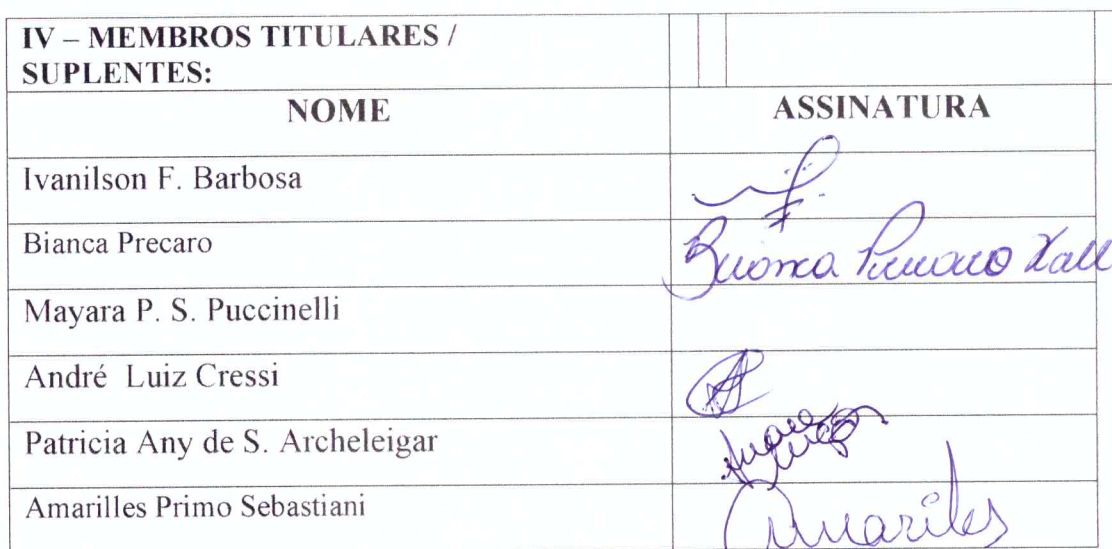 IV – MEMBROS TITULARES /
SUPLENTES:
NOME ASSINATURA
Ivanilson F. Barbosa
Bianca Precaro Bianca
Mayara P. S. Puccinelli
André Luiz Cressi
Patricia Any de S. Archeleigar
Amarilles Primo Sebastiani Amariles